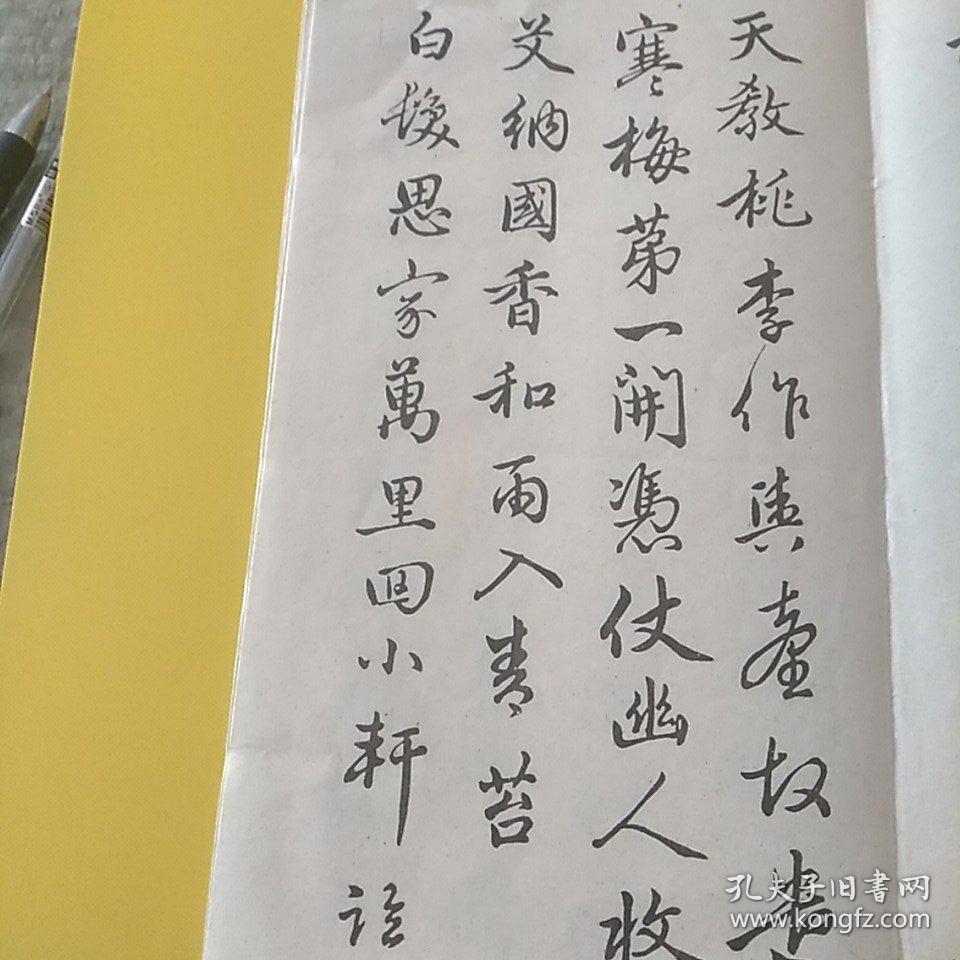 天教桃李作輿臺故
寒梅第一開憑仗幽人收
艾納國香和雨入青苔
白髮思家萬里回小軒臨
孔夫子旧書网
www.kongfz.com